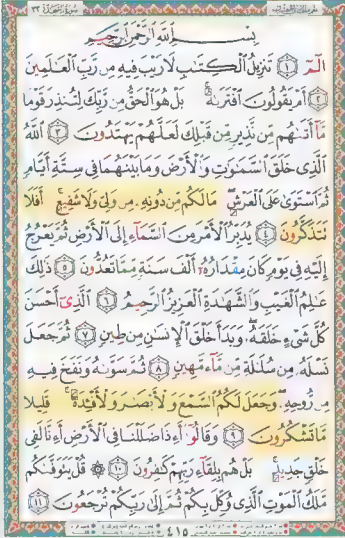 سورة السجدة ٣٢
بِسْمِ اللَّهِ الرَّحْمَٰنِ الرَّحِيمِ
الٓمٓ ١ تَنزِيلُ الْكِتَٰبِ لَا رَيْبَ فِيهِ مِن رَّبِّ الْعَٰلَمِينَ
٢ أَمْ يَقُولُونَ افْتَرَىٰهُ بَلْ هُوَ الْحَقُّ مِن رَّبِّكَ لِتُنذِرَ قَوْمًا
مَّآ أَتَىٰهُم مِّن نَّذِيرٍ مِّن قَبْلِكَ لَعَلَّهُمْ يَهْتَدُونَ ٣ اللَّهُ
الَّذِى خَلَقَ السَّمَٰوَٰتِ وَالْأَرْضَ وَمَا بَيْنَهُمَا فِى سِتَّةِ أَيَّامٍ
ثُمَّ اسْتَوَىٰ عَلَى الْعَرْشِ مَا لَكُم مِّن دُونِهِ مِن وَلِىٍّ وَلَا شَفِيعٍ أَفَلَا
تَتَذَكَّرُونَ ٤ يُدَبِّرُ الْأَمْرَ مِنَ السَّمَآءِ إِلَى الْأَرْضِ ثُمَّ يَعْرُجُ
إِلَيْهِ فِى يَوْمٍ كَانَ مِقْدَارُهُ أَلْفَ سَنَةٍ مِّمَّا تَعُدُّونَ ٥ ذَٰلِكَ
عَٰلِمُ الْغَيْبِ وَالشَّهَٰدَةِ الْعَزِيزُ الرَّحِيمُ ٦ الَّذِىٓ أَحْسَنَ
كُلَّ شَىْءٍ خَلَقَهُ وَبَدَأَ خَلْقَ الْإِنسَٰنِ مِن طِينٍ ٧ ثُمَّ جَعَلَ
نَسْلَهُ مِن سُلَٰلَةٍ مِّن مَّآءٍ مَّهِينٍ ٨ ثُمَّ سَوَّىٰهُ وَنَفَخَ فِيهِ
مِن رُّوحِهِ وَجَعَلَ لَكُمُ السَّمْعَ وَالْأَبْصَٰرَ وَالْأَفْـِٔدَةَ قَلِيلًا
مَّا تَشْكُرُونَ ٩ وَقَالُوٓا أَءِذَا ضَلَلْنَا فِى الْأَرْضِ أَءِنَّا لَفِى
خَلْقٍ جَدِيدٍ بَلْ هُم بِلِقَآءِ رَبِّهِمْ كَٰفِرُونَ ١٠ ۞ قُلْ يَتَوَفَّىٰكُم
مَّلَكُ الْمَوْتِ الَّذِى وُكِّلَ بِكُمْ ثُمَّ إِلَىٰ رَبِّكُمْ تُرْجَعُونَ ١١
٤١٥